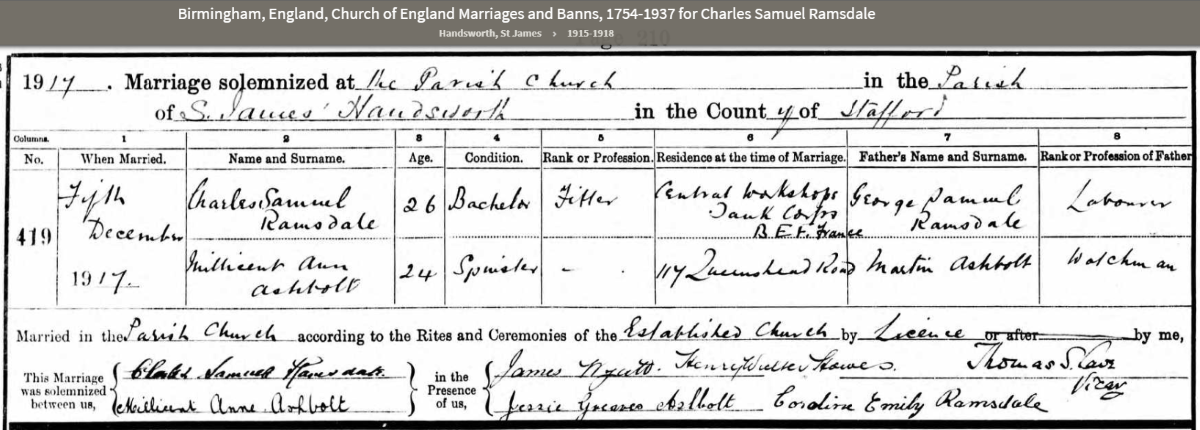 Birmingham, England, Church of England Marriages and Banns, 1754-1937 for Charles Samuel Ramsdale
Handsworth, St James > 1915-1918
Page 210
1917. Marriage solemnized at the Parish Church in the Parish
of S. James' Handsworth in the County of Stafford
Columns. 1 2 3 4 5 6 7 8
No. When Married. Name and Surname. Age. Condition. Rank or Profession. Residence at the time of Marriage. Father's Name and Surname. Rank or Profession of Father
419
Fifth December 1917.
Charles Samuel Ramsdale 26 Bachelor Fitter Central Workshops Tank Corps B.E.F. France George Samuel Ramsdale Labourer
Millicent Ann Ashbolt 24 Spinster - 117 Queenshead Road Martin Ashbolt Watchman
Married in the Parish Church according to the Rites and Ceremonies of the Established Church by Licence or after by me,
This Marriage was solemnized between us, Charles Samuel Ramsdale in the Presence of us, James Henry Walter Howes. Thomas S. Vicar
Millicent Anne Ashbolt Jessie Greaves Ashbolt Caroline Emily Ramsdale